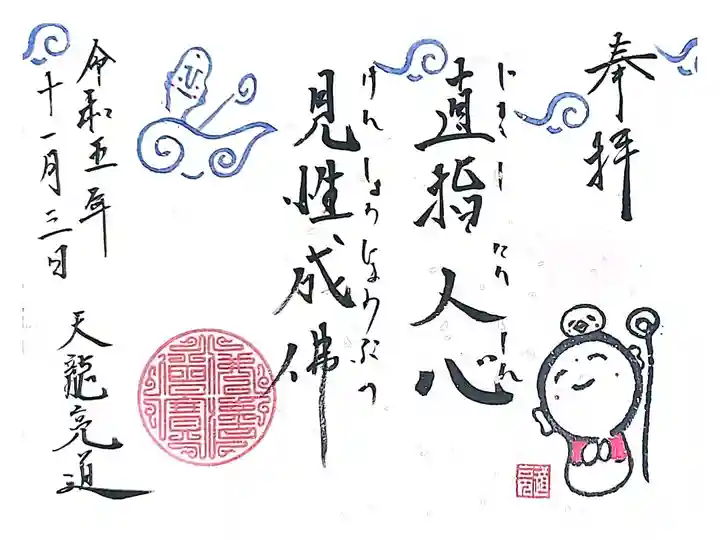 奉拝
直指人心
じきしにんしん
見性成佛
けんしょうじょうぶつ
令和五年
十一月三日
天龍亮道